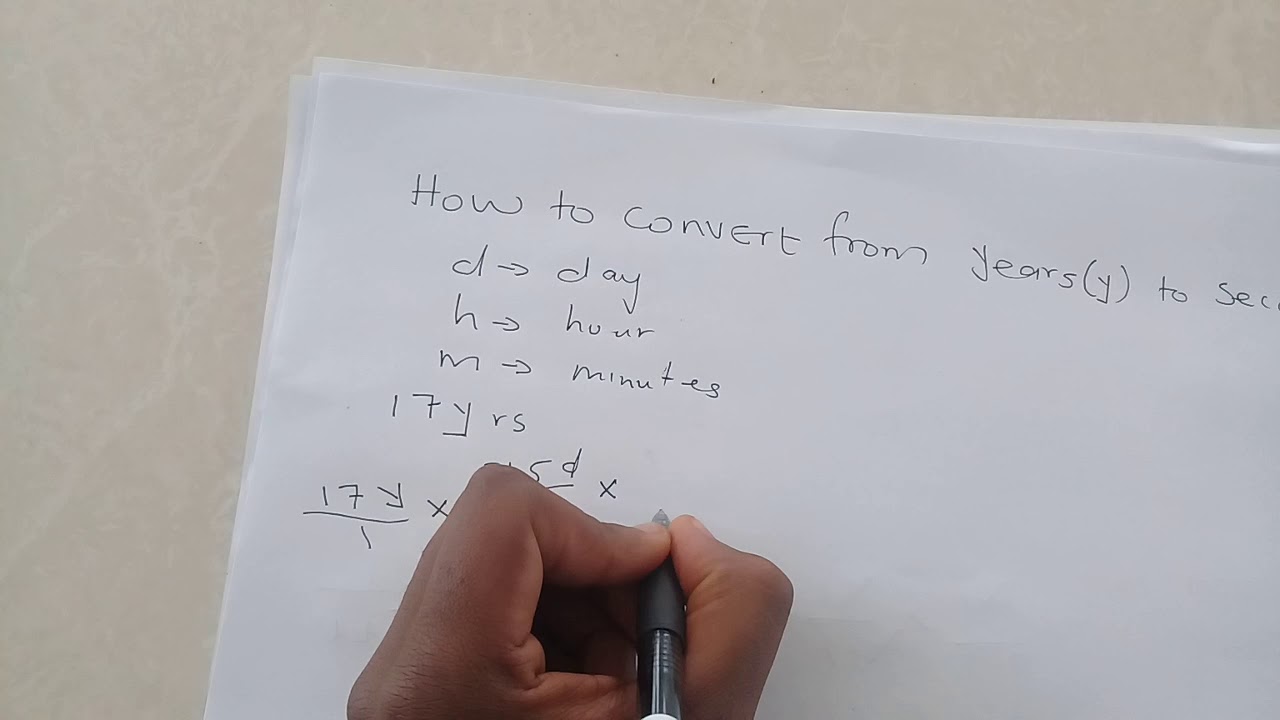 How to convert from years(y) to
d → day
h → hour
m → minutes
17yrs
17y × 5d ×
1